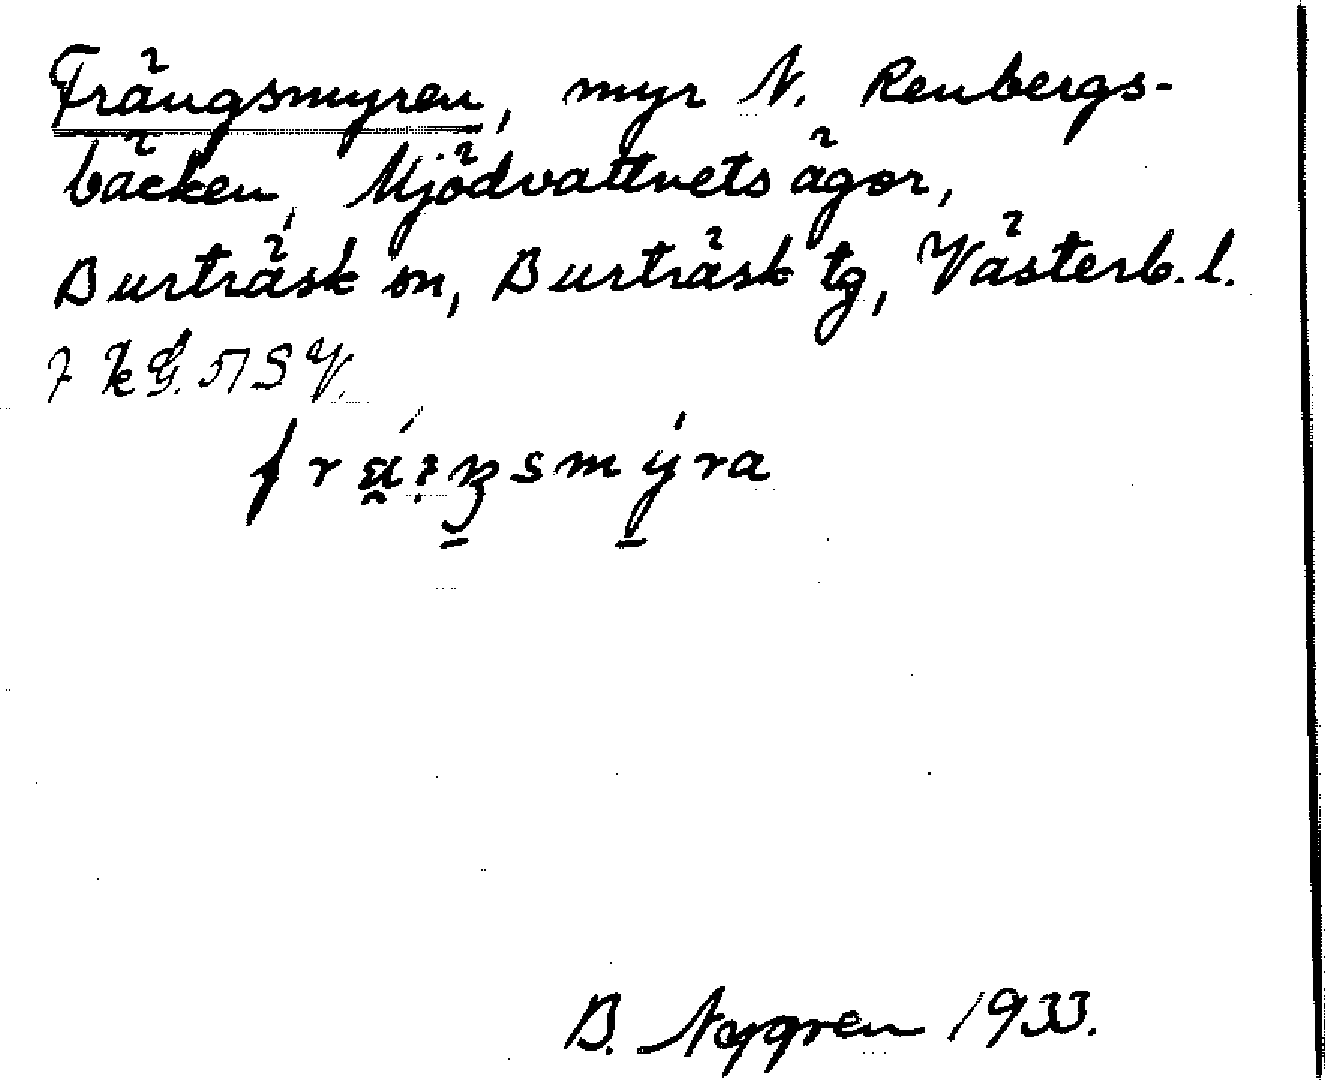 Frängsmyren, myr N. Renbergs-
bäcken, Mjödvattnets ägor,
Burträsk sn, Burträsk tg, Västerb. l.
B. Nygren 1933.